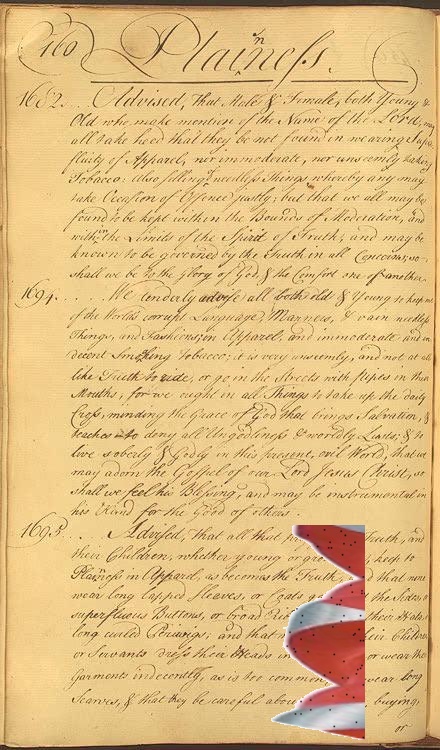 160 Plainness.
1682... Advised, That Male & Female, both Young &
Old who make mention of the Name of the Lord, may
all take heed that they be not found in wearing Super
fluity of Apparel, nor immoderate, nor unseemly taking
Tobacco: Also selling needless Things whereby any may
take Occasion of Offence justly; but that we all may be
found to be kept within the Bounds of Moderation, and
within the Limits of the Spirit of Truth, and may be
known to be governed by the Truth in all Concerns, so
shall we be to the Glory of God, & the Comfort one of another.
1694..... We tenderly advise all both old & Young to keep out
of the World's corrupt Language, Manners, & vain needless
Things, and Fashions, in Apparel; and immoderate and in
decent Smoking Tobacco; it is very unseemly, and not at all
like Truth to ride, or go in the Streets with pipes in their
Mouths, for we ought in all Things to take up the daily
Cross, minding the Grace of God that brings Salvation, &
teaches to deny all Ungodliness & worldly Lusts, & to
live soberly & Godly in this present, evil World, that we
may adorn the Gospel of our Lord Jesus Christ, so
shall we feel his Blessing, and may be instrumental in
his Hand for the Good of others.
1695... Advised, That all that Truth, and
their Children, whether young or keep to
Plainness in Apparel, as becomes the Truth, that none
wear long lapped Sleaves, or Coats the Sides, or
superfluous Buttons, or broad their Hats, or
long curled Perriwigs, and that Children
or Servants dress their Heads or wear their
Garments indecently, as is too common, wear long
Scarves, & that they be careful about buying,
or